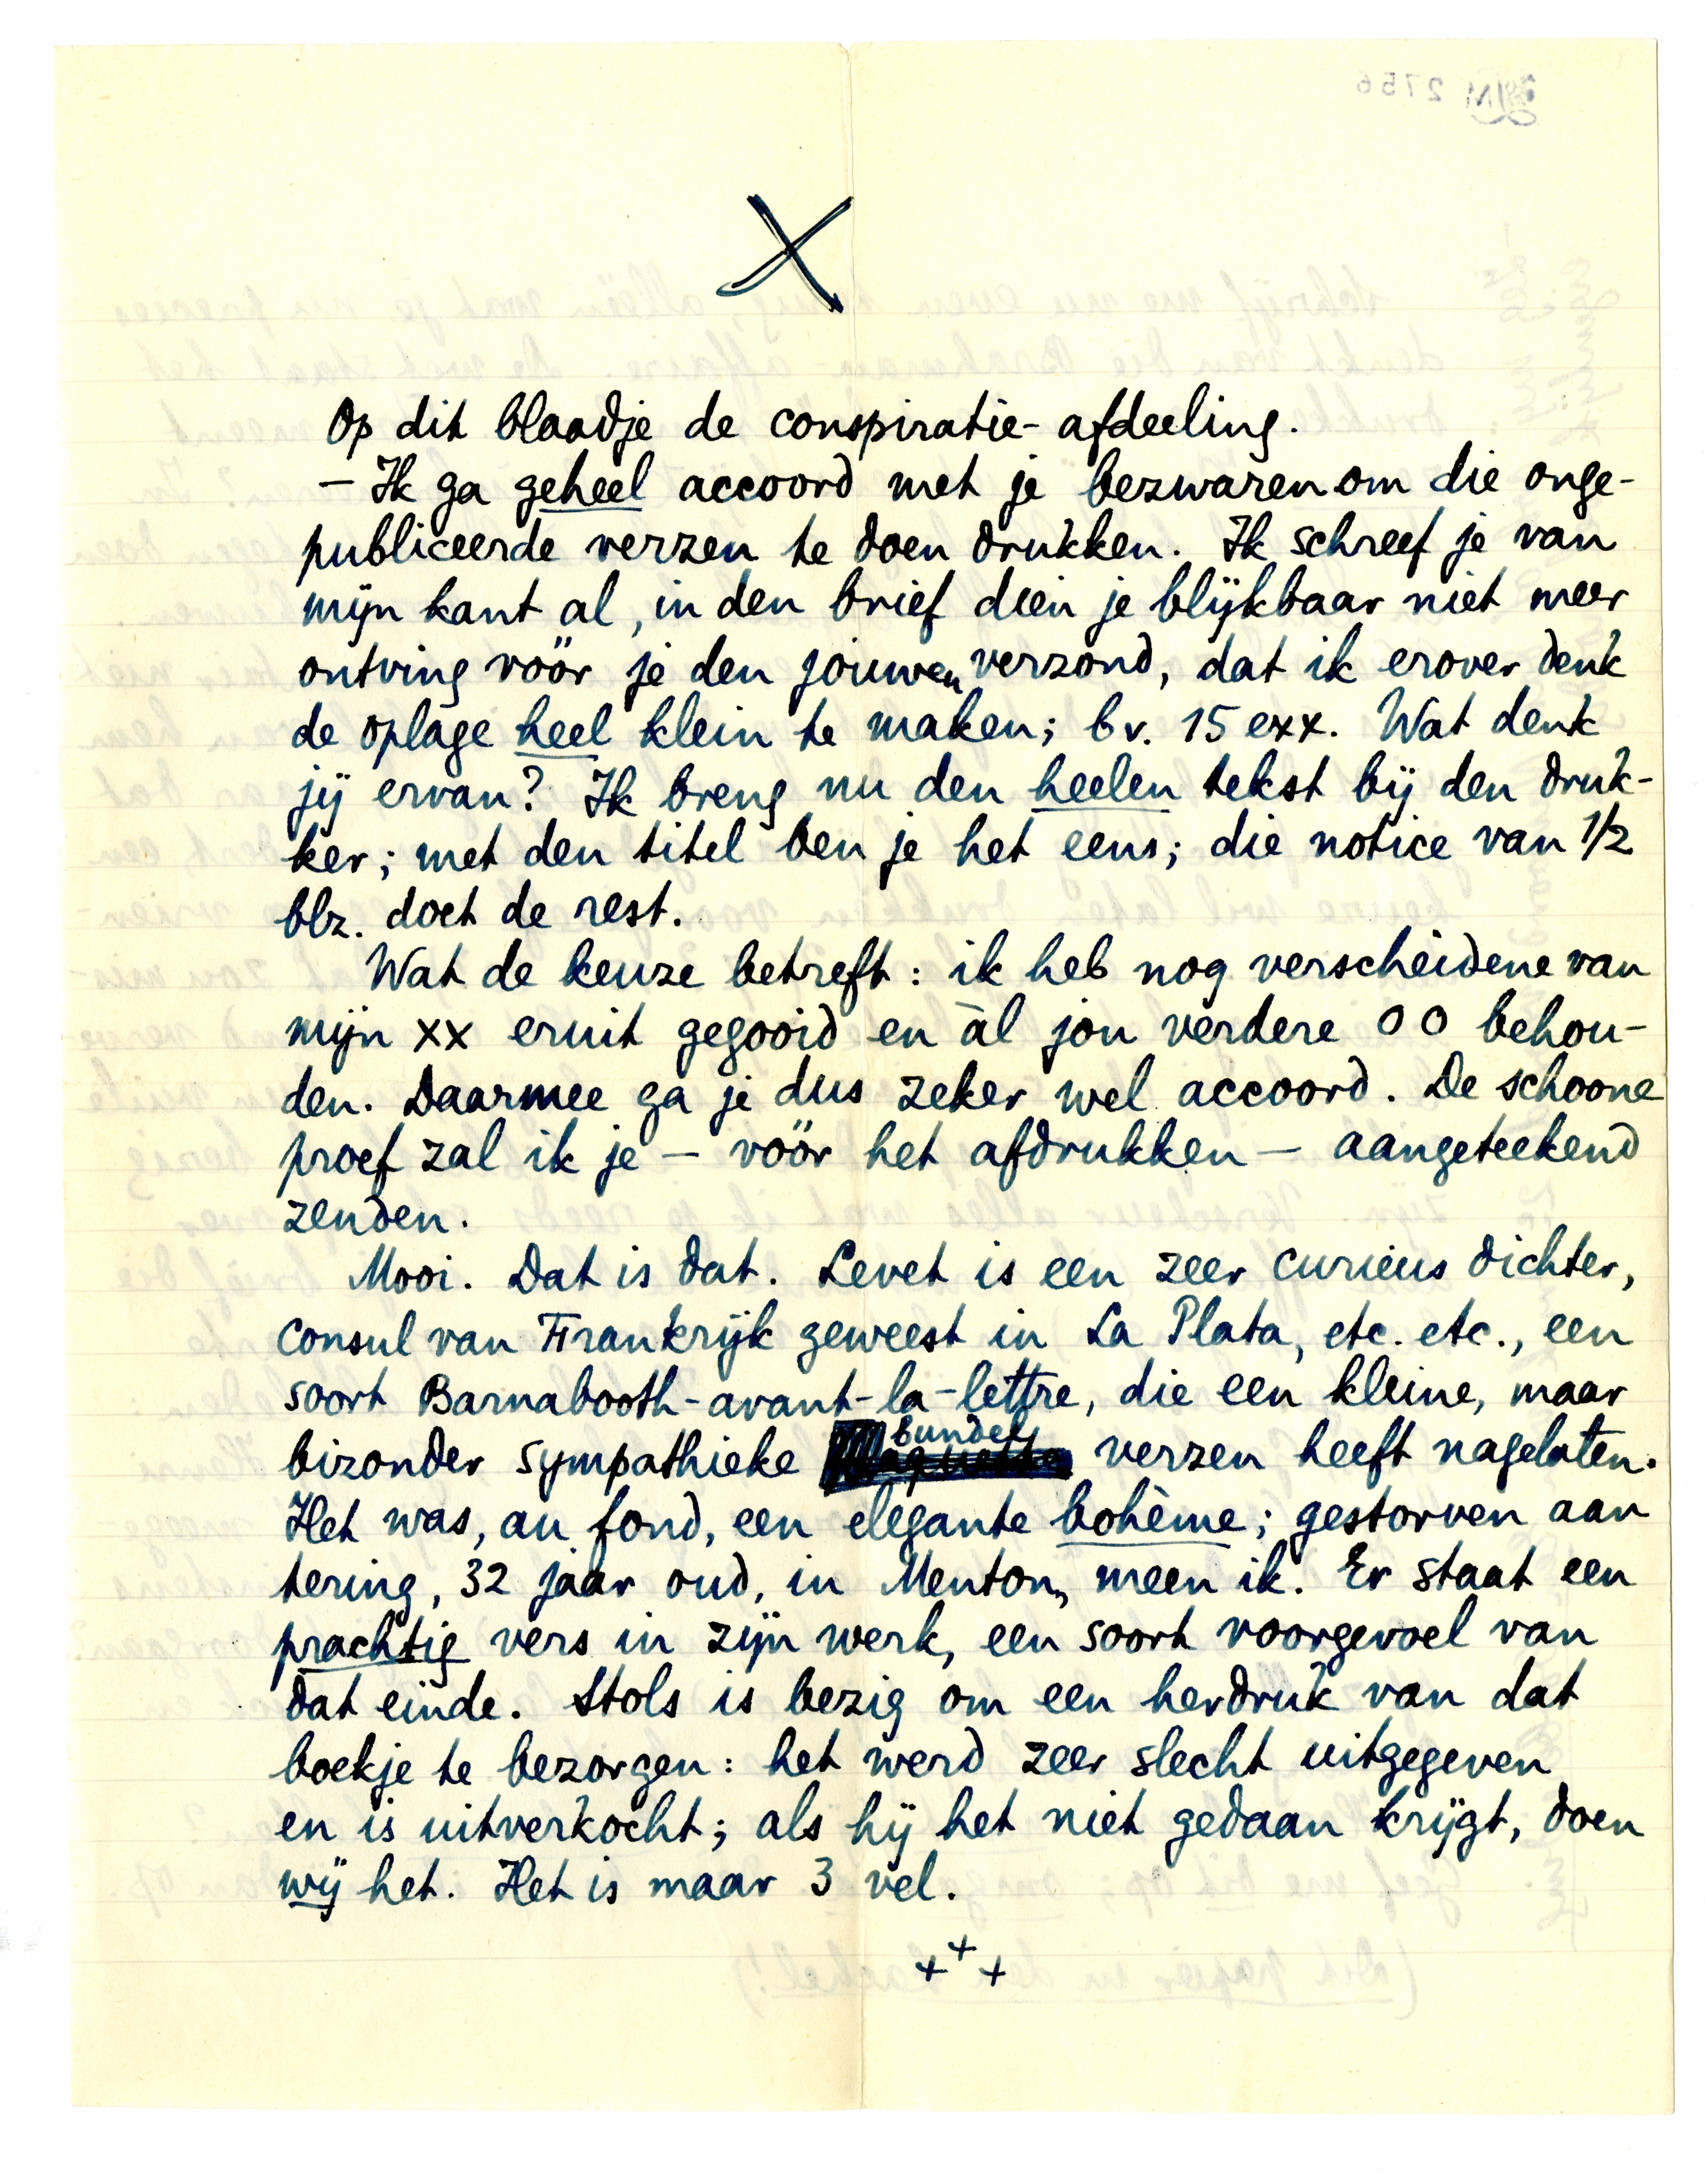 X
Op dit blaadje de conspiratie-afdeeling.
– Ik ga geheel accoord met je bezwaren om die onge-
publiceerde verzen te doen drukken. Ik schreef je van
mijn kant al, in den brief dien je blijkbaar niet meer
ontving vóór je den jouwen verzond, dat ik erover denk
de oplage heel klein te maken; bv. 15 exx. Wat denk
jij ervan? Ik breng nu den heelen tekst bij den druk-
ker; met den titel ben je het eens; die notice van 1/2
blz. doet de rest.
Wat de keuze betreft: ik heb nog verscheidene van
mijn xx eruit gegooid en àl jou verdere 00 behou-
den. Daarmee ga je dus zeker wel accoord. De schoone
proef zal ik je – vóór het afdrukken – aangeteekend
zenden.
Mooi. Dat is dat. Levet is een zeer curieus dichter,
consul van Frankrijk geweest in La Plata, etc. etc., een
soort Barnabooth-avant-la-lettre, die een kleine, maar
bizonder sympathieke bundel verzen heeft nagelaten.
Het was, au fond, een elegante bohème; gestorven aan
tering, 32 jaar oud, in Menton, meen ik. Er staat een
prachtig vers in zijn werk, een soort voorgevoel van
dat einde. Stols is bezig om een herdruk van dat
boekje te bezorgen: het werd zeer slecht uitgegeven
en is uitverkocht; als hij het niet gedaan krijgt, doen
wij het. Het is maar 3 vel.
+ + +